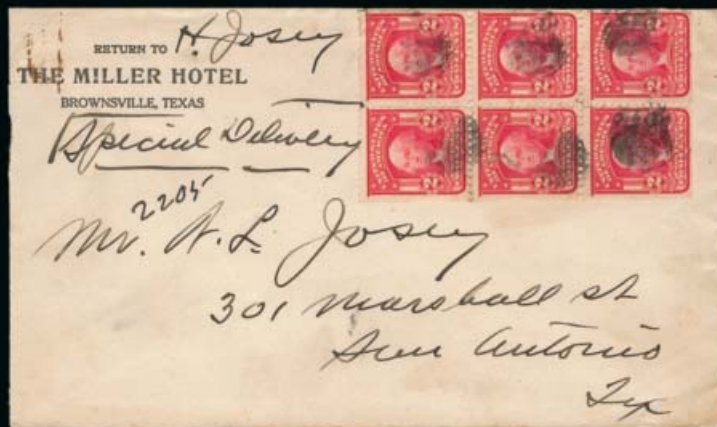 RETURN TO H. Josey
THE MILLER HOTEL
BROWNSVILLE, TEXAS
Special Delivery
2205
Mr. N. L. Josey
301 Marshall st
San Antonio
Tex